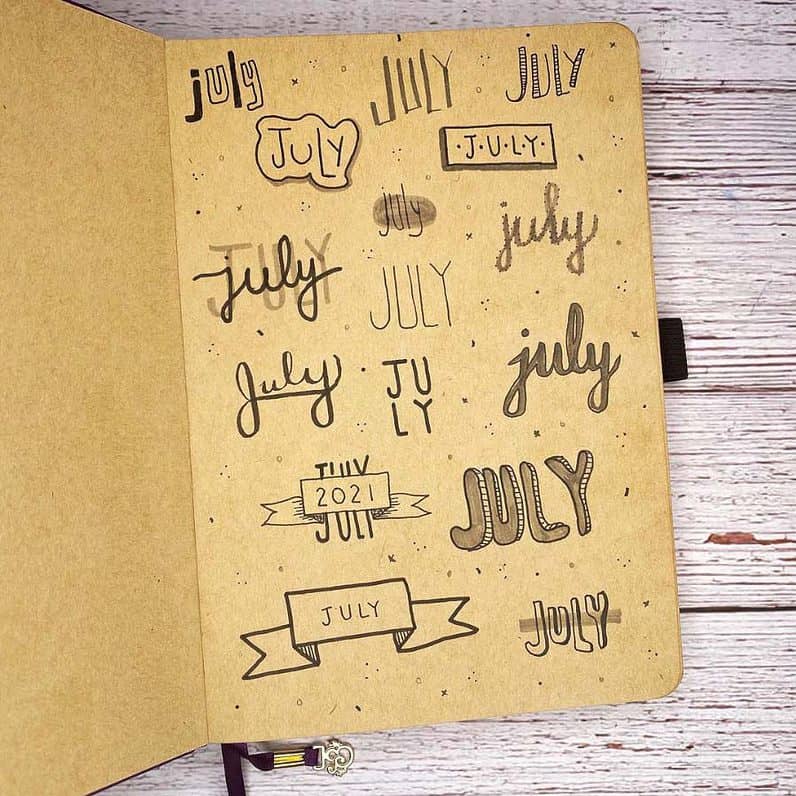 july
JULY
JULY
JULY
·J·U·L·Y·
july
july
JULY
july
JULY
july
July
JU
LY
JULY
2021
JULY
JULY
JULY